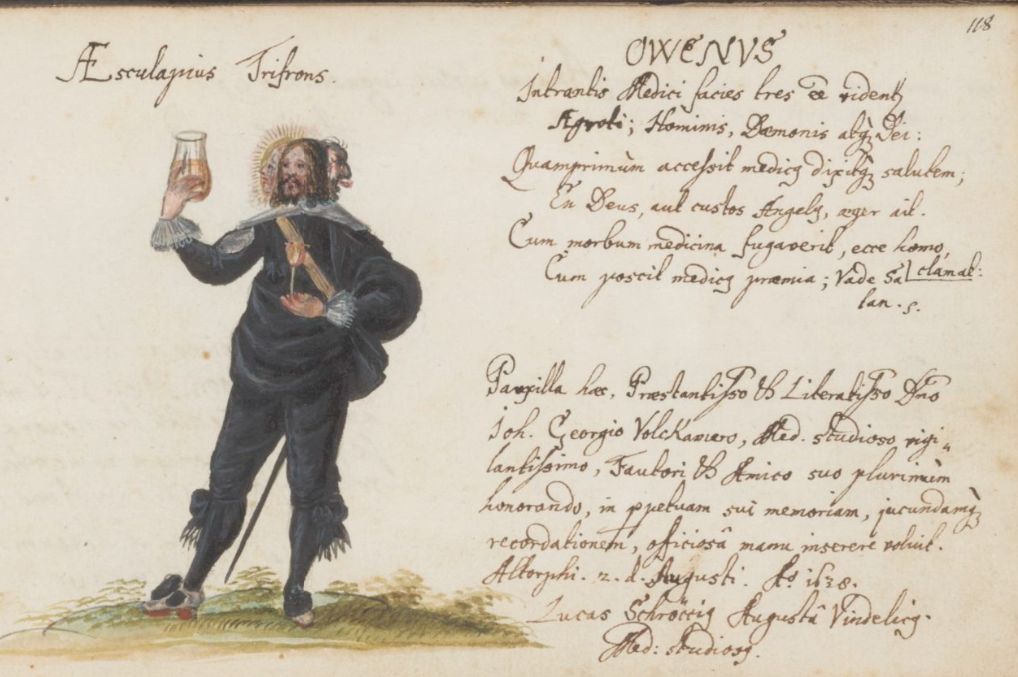 118
Æsculapius Trifrons.
OWENVS
Intrantis Medici facies tres eē videntꝫ
Ægroti; Hominis, Dæmonis atqꝫ Dei:
Quamprimùm accessit medicꝰ dixitqꝫ salutem;
En Deus, aut custos Angelꝰ, æger ait.
Cum morbum medicina fugaverit, ecce homo,
clamat:
Cum poscit medicꝰ præmia; Vade Sa
tan. s.
Pauxilla hæc, Præstantisso & Literatisso Dño
Joh. Georgio Volckamero, Med. studioso vigi„
lantissimo, Fautori & Amico suo plurimùm
honorando, in ꝑpetuam sui memoriam, jucundamqꝫ
recordationem, officiosâ manu inserere voluit.
Altorphi. 2. d. Augusti. Aº. 1638.
Lucas Schröckiꝰ Augustâ Vindelicꝰ.
Med: studiosꝰ.